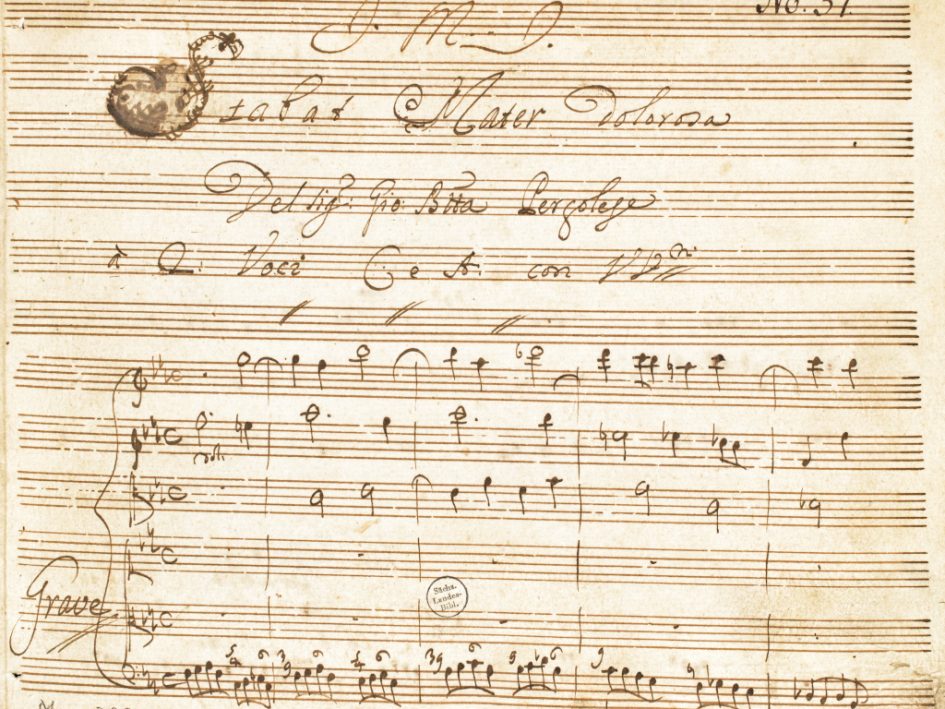 No. 31.
J. M. J.
Stabat Mater Dolorosa
Del Sigr: Gio: Btta Pergolese
à 2. Voci C. e A. con VV.ni
Grave
Sächs.
Landes-
Bibl.